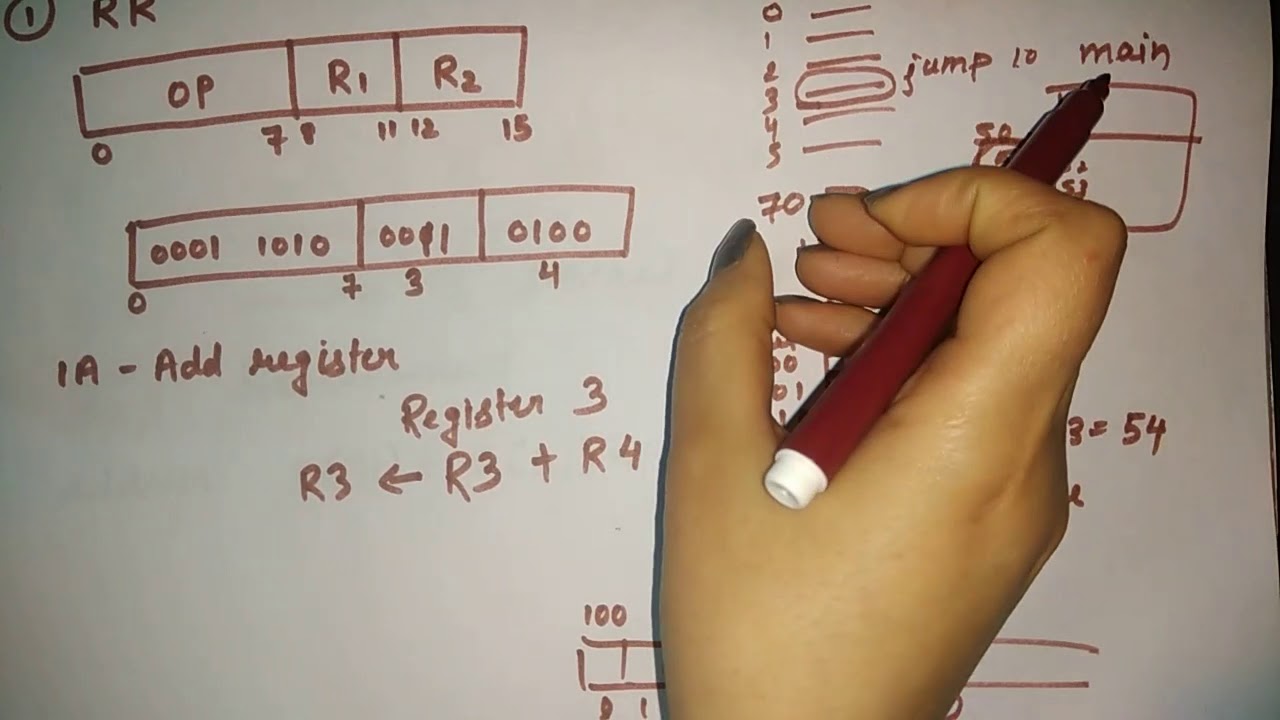 ① RR
OP R1 R2
0 7 8 11 12 15
0001 1010 0011 0100
0 7 3 4
1A - Add register
Register 3
R3 ← R3 + R4
0
1
2
3 jump to main
4
5
50
52
53
70
00
01
3 = 54
100
0 1